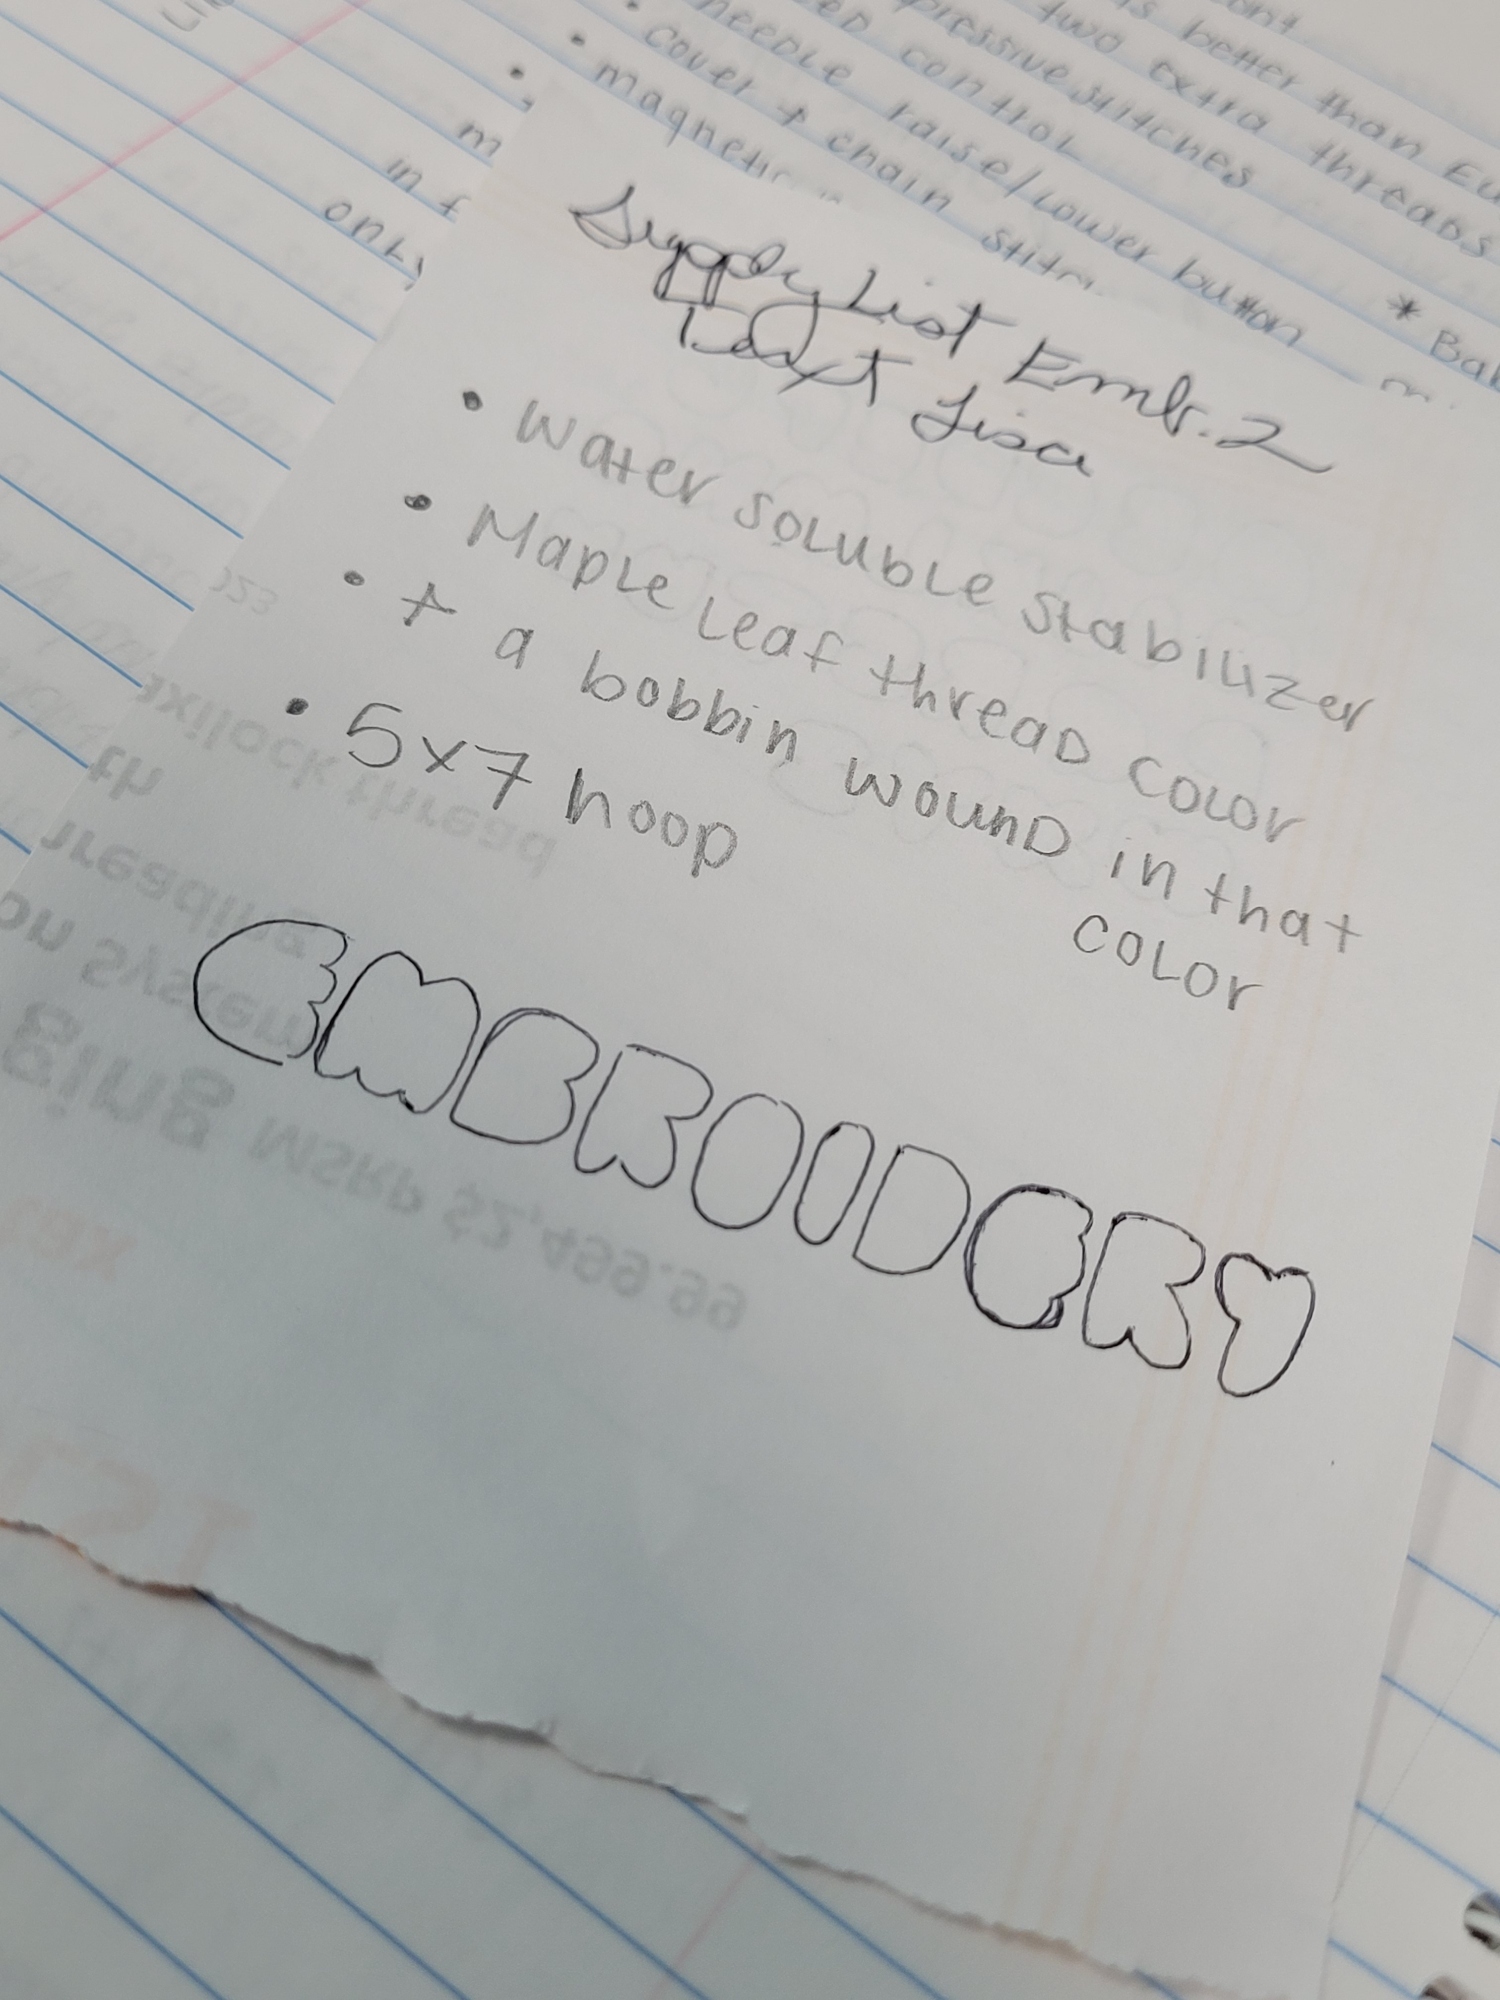 better than Eu
two extra threads
pressive stitches
control
needle raise/lower button
cover + chain stitch
magnetic
* Bab
m
in f
only
Supply List Embr. 2
Text Lisa
• water soluble stabilizer
• Maple leaf thread color
• + a bobbin wound in that
color
• 5x7 hoop
EMBROIDERY
axilock thread
th
hreading
on System
ging MSRP $2,499.99
tax